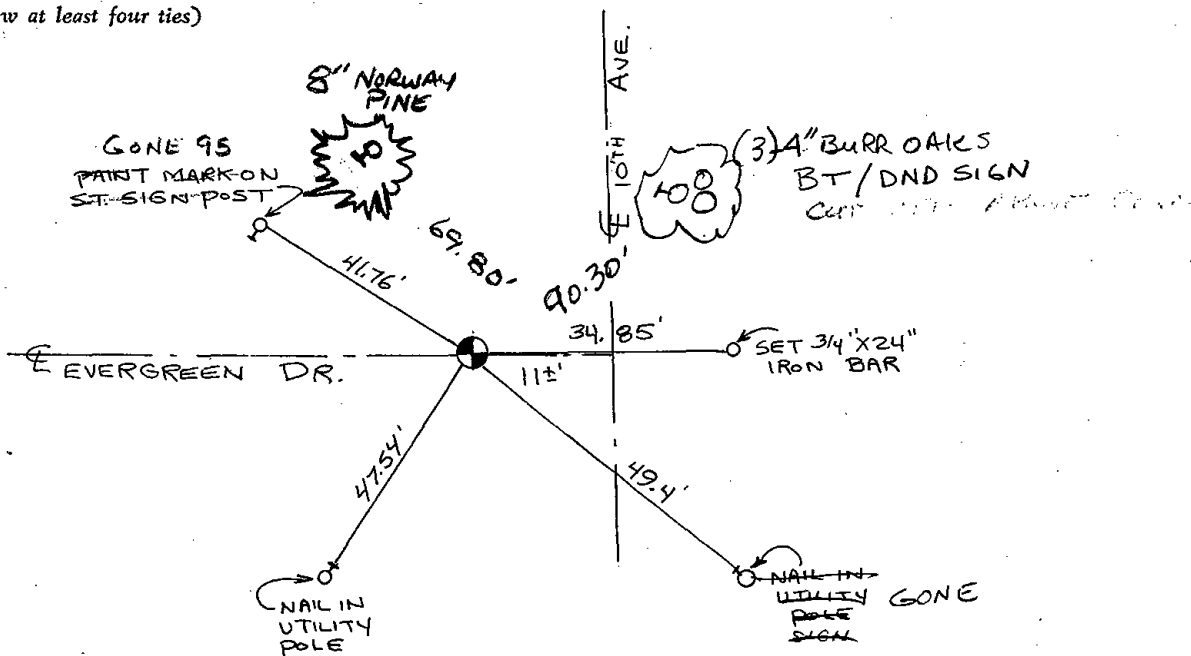 w at least four ties)
8" NORWAY
PINE
GONE 95
PAINT MARK ON
ST. SIGN POST
℄ 10TH AVE.
(3) 4" BURR OAKS
BT / DND SIGN
69.80'
90.30'
41.76'
34.85'
SET 3/4" X 24"
IRON BAR
℄ EVERGREEN DR.
11±'
47.54'
49.4'
NAIL IN
UTILITY
POLE
NAIL IN
UTILITY
POLE
SIGN
GONE